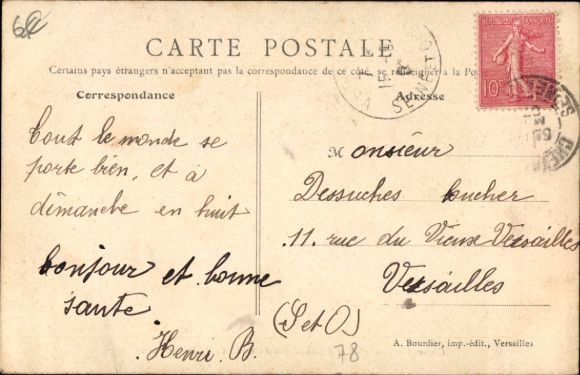 CARTE POSTALE
Certains pays étrangers n'acceptant pas la correspondance de ce côté, se renseigner à la Po
Correspondance
Adresse
RÉPUBLIQUE FRANÇAISE
10c
Tout le monde se
porte bien, et à
dimanche en huit
bonjour et bonne
santé.
Henri. B.
Monsieur
Dessuches bucher
11. rue du Vieux Versailles
Versailles
(S et O)
78
A. Bourdier, imp.-édit., Versailles